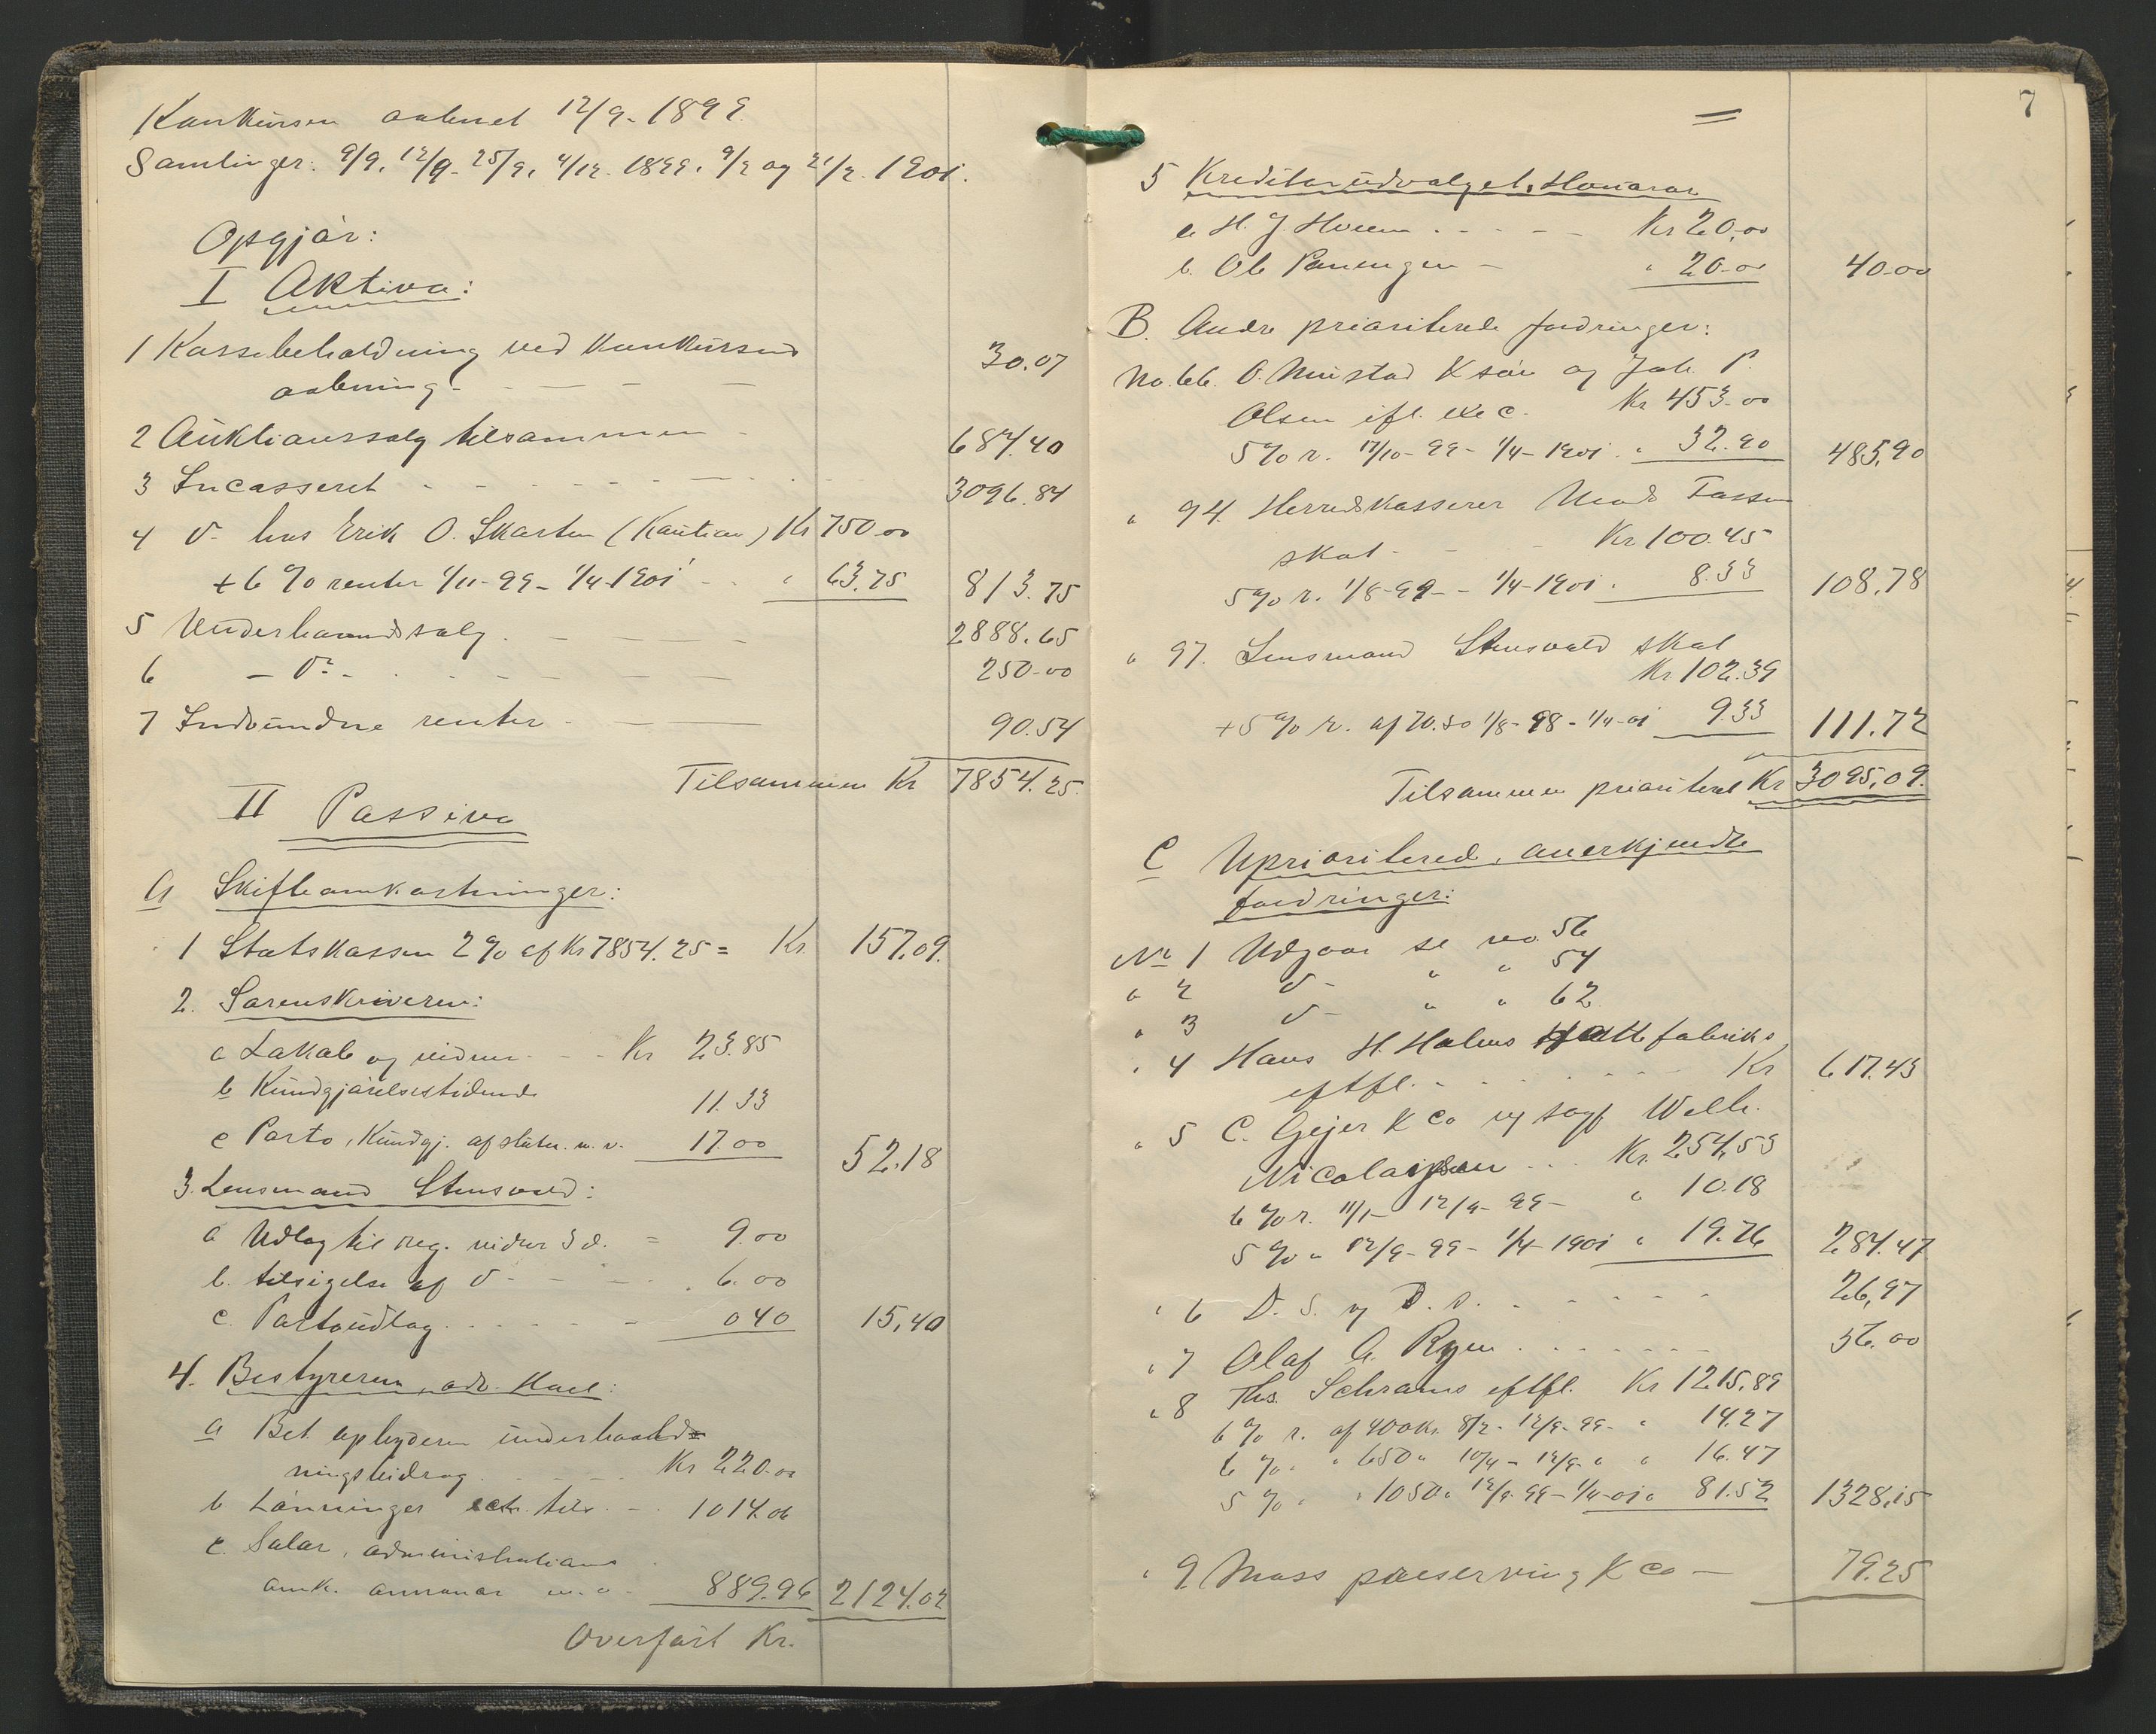 Konkursen aabnet 12/9-1899.
Samlinger: 9/9, 12/9-25/9, 4/12. 1899, 9/2 og 21/2. 1901.
Opgjør:
I Aktiva:
1 Kassebeholdning ved konkursens
aabning - 30.07
2 Auktionssalg tilsammen - 684.40
3 Incasseret - 3096.84
4 D- hos Erik O. Skarten (Kaution) Kr 750.00
+ 6 % renter 1/11-99 - 1/4-1901 " 63.75 813.75
5 Underhaandssalg - 2888.65
6 - Do - 250.00
7 Indvundne renter - 90.54
Tilsammen Kr 7854.25
II Passiva
A Skifteomkostninger:
1 Statskassen 2 % af Kr 7854.25 = Kr. 157.09.
2. Sorenskriveren:
a Lokale og vidner - - Kr 23.85
b Kundgjørelsestidende 11.33
c Porto, Kundgj. af slutn. m. v. 17.00 52.18
3. Lensmand Stensvold:
a Udlag til reg. vidner 3 d. = 9.00
b. tilsigelse af D - 6.00
c. Portoudlag 0 40 15,40
4. Bestyreren, adv.
a Bet. opbyderen underhold-
ningsbidrag Kr 220.00
b Lønninger ectr. tils. - 1014.06
c. Salær, administrations
omk. annoncer m. v. 889.96 2124.02
Overført Kr.
7
=
5 Kreditorudvalget, Honorar
a H. J. Hveem - Kr 20,00
b. Ole - " 20.00 40.00
B. Andre prioriterede fordringer:
No. 66. O. Mustad & søn og Joh. P.
Olsen ifl. exec. Kr 453.00
5 % r. 17/10-99 - 1/4-1901 " 32.90 485,90
" 94. Herredskasserer Mads Fossen
skat - Kr 100.45
5 % r. 1/8-99 - 1/4-1901 . 8.33 108.78
" 97. Lensmand Stensvold skat
Kr 102.39
+ 5 % r. af 70.30 1/8-98 - 1/4-01 9.33 111.72
Tilsammen prioriteret Kr 3095,09.
C Uprioriterede, anerkjendte
fordringer:
No 1 Udgaar se no 56
" 2 D- " " 54
" 3 D- " " 62
" 4 Hans H. Holms Hattefabriks
eftfl. - Kr 617.43
" 5 C. Gejer & Co v/ sagf Wilh.
Nicolaysen ... Kr. 254,53
6 % r. 11/1 - 12/9-99 - " 10.18
5 % " 12/9-99 - 1/4-1901 " 19.76 284.47
" 6 D. S. v/ D. s. - 26,97
" 7 Olaf A. Ryen - 36.00
" 8 Ths. Schrams eftfl. Kr 1215.89
6 % r. af 400 Kr. 8/2 - 12/9-99 - " 14.27
6 % " " 650 " 10/4 - 12/9 " " 16.47
5 % " " 1050 " 12/9-99 - 1/4-01 " 81.52 1328,15
" 9 Moss preserving & Co - 79.25